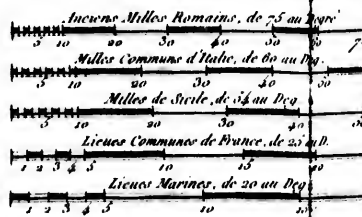 Anciens Milles Romains, de 75 au Degré
5 10 20 30 40 50 60
Milles Communs d'Italie, de 60 au Deg.
5 10 20 30 40 50
Milles de Sicile, de 54 au Deg
5 10 20 30 40
Lieues Communes de France, de 25 au D.
1 2 3 4 5 10 15
Lieues Marines, de 20 au Deg
1 2 3 4 5 10